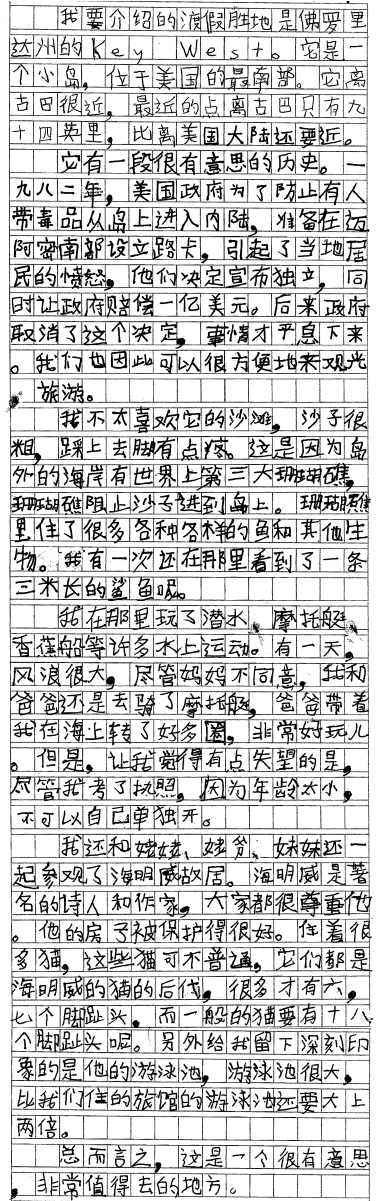 我要介绍的渡假胜地是佛罗里
达州的Key West。它是一
个小岛，位于美国的最南部。它离
古巴很近，最近的点离古巴只有九
十四英里，比离美国大陆还要近。
它有一段很有意思的历史。一
九八二年，美国政府为了防止有人
带毒品从岛上进入内陆，准备在迈
阿密南部设立路卡，引起了当地居
民的愤怒，他们决定宣布独立，同
时让政府赔偿一亿美元。后来政府
取消了这个决定，事情才平息下来
。我们也因此可以很方便地来观光
旅游。
我不太喜欢它的沙滩，沙子很
粗，踩上去脚有点疼。这是因为岛
外的海岸有世界上第三大珊瑚礁，
珊瑚礁阻止沙子进到岛上。珊瑚礁
里住了很多各种各样的鱼和其他生
物。我有一次还在那里看到了一条
三米长的鲨鱼呢。
我在那里玩了潜水，摩托艇，
香蕉船等许多水上运动。有一天，
风浪很大，尽管妈妈不同意，我和
爸爸还是去骑了摩托艇，爸爸带着
我在海上转了好多圈，非常好玩儿
。但是，让我觉得有点失望的是，
尽管我考了执照，因为年龄太小，
不可以自己单独开。
我还和姥姥、姥爷、妹妹还一
起参观了海明威故居。海明威是著
名的诗人和作家，大家都很尊重他
。他的房子被保护得很好。住着很
多猫，这些猫可不普通，它们都是
海明威的猫的后代，很多才有六，
七个脚趾头，而一般的猫要有十八
个脚趾头呢。另外给我留下深刻印
象的是他的游泳池，游泳池很大，
比我们住的旅馆的游泳池还要大上
两倍。
总而言之，这是一个很有意思
，非常值得去的地方。